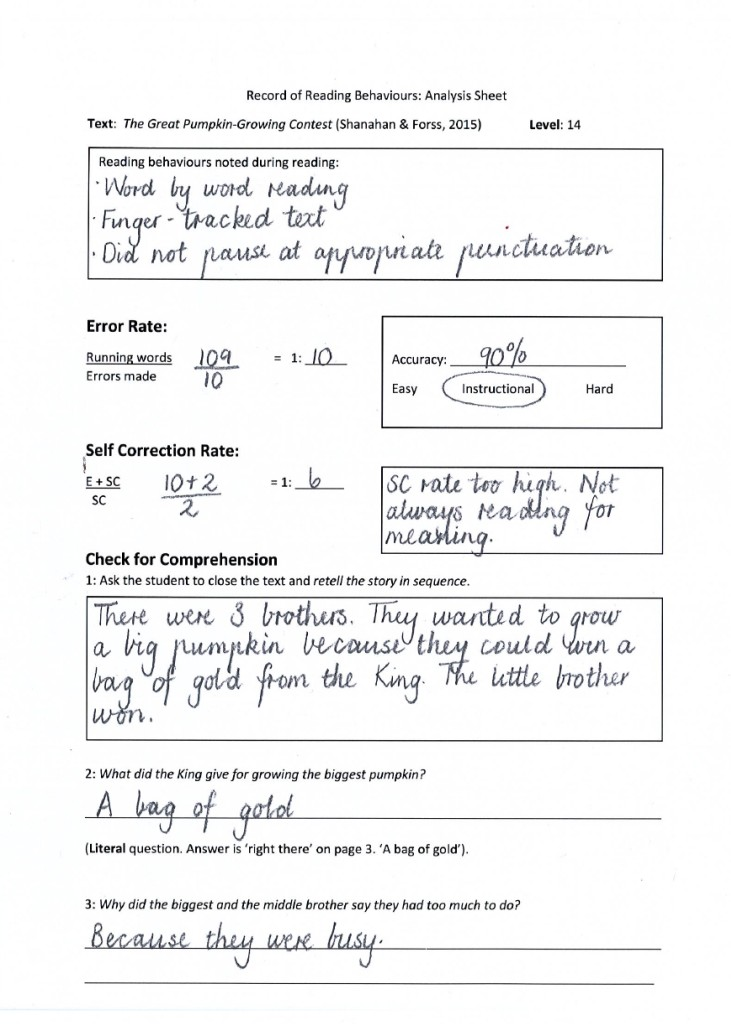 Record of Reading Behaviours: Analysis Sheet
Text: The Great Pumpkin-Growing Contest (Shanahan & Forss, 2015) Level: 14
Reading behaviours noted during reading:
· Word by word reading
· Finger - tracked text
· Did not pause at appropriate punctuation
Error Rate:
Running words 109 = 1: 10
Errors made 10
Accuracy: 90%
Easy Instructional Hard
Self Correction Rate:
E + SC 10+2 = 1: 6
SC 2
SC rate too high. Not
always reading for
meaning.
Check for Comprehension
1: Ask the student to close the text and retell the story in sequence.
There were 3 brothers. They wanted to grow
a big pumpkin because they could win a
bag of gold from the King. The little brother
won.
2: What did the King give for growing the biggest pumpkin?
A bag of gold
(Literal question. Answer is 'right there' on page 3. 'A bag of gold').
3: Why did the biggest and the middle brother say they had too much to do?
Because they were busy.